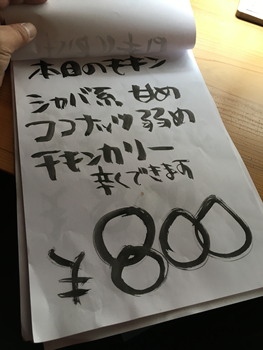 本日のチキン
シャバ系 甘め
ココナッツ弱め
チキンカリー
辛くできます
¥800